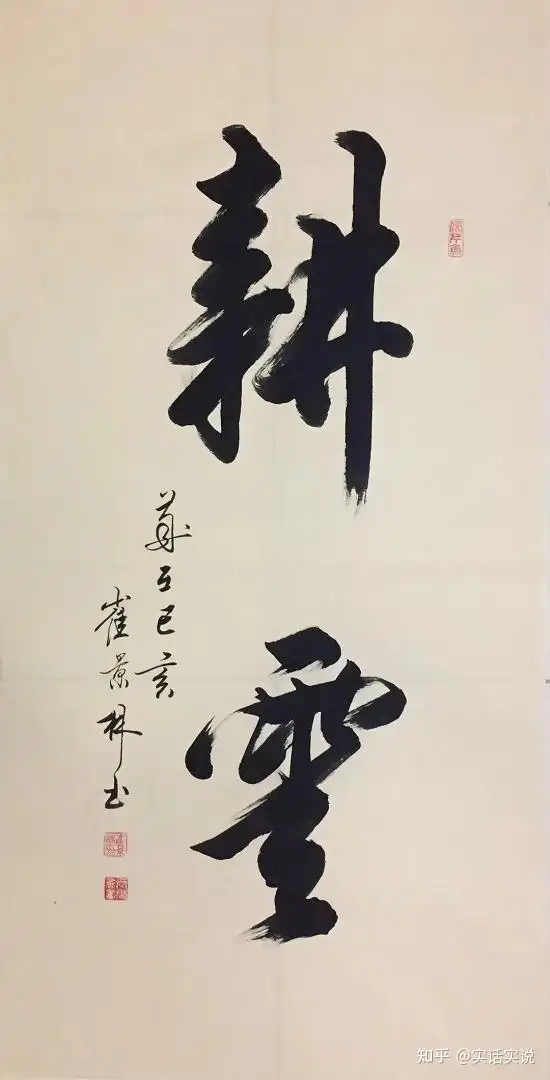 耕雲
歲在己亥
崔景林书
知乎 @实话实说